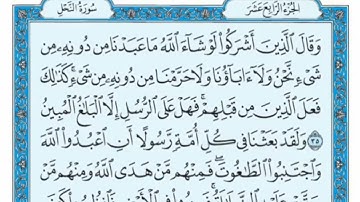 الجزء الرابع عشر
سورة النحل
وَقَالَ الَّذِينَ أَشْرَكُوا لَوْ شَاءَ اللَّهُ مَا عَبَدْنَا مِن دُونِهِ مِن
شَيْءٍ نَّحْنُ وَلَا آبَاؤُنَا وَلَا حَرَّمْنَا مِن دُونِهِ مِن شَيْءٍ كَذَٰلِكَ
فَعَلَ الَّذِينَ مِن قَبْلِهِمْ فَهَلْ عَلَى الرُّسُلِ إِلَّا الْبَلَاغُ الْمُبِينُ
٣٥ وَلَقَدْ بَعَثْنَا فِي كُلِّ أُمَّةٍ رَّسُولًا أَنِ اعْبُدُوا اللَّهَ
وَاجْتَنِبُوا الطَّاغُوتَ فَمِنْهُم مَّنْ هَدَى اللَّهُ وَمِنْهُم مَّنْ